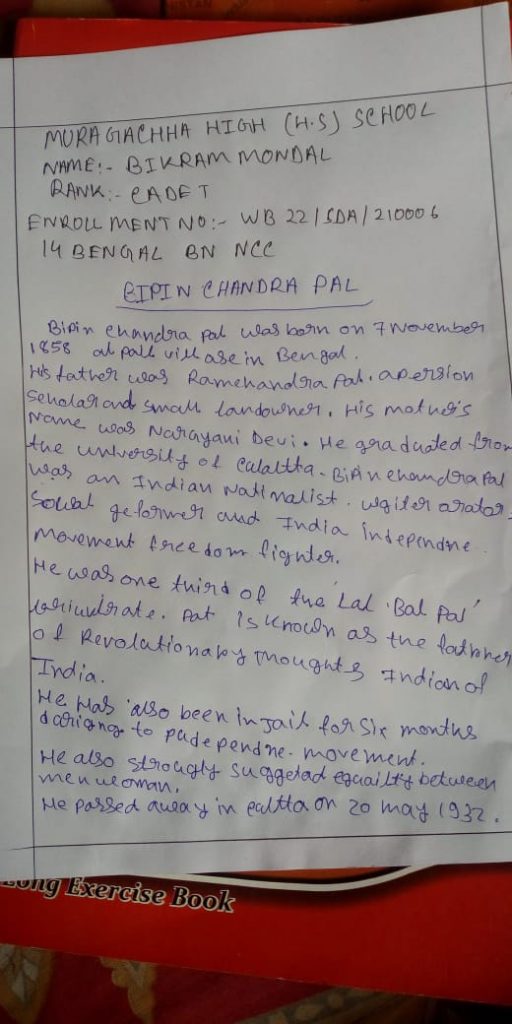 MURAGACHHA HIGH (H.S) SCHOOL
NAME:- BIKRAM MONDAL
RANK:- CADET
ENROLLMENT NO:- WB 22/SDA/210006
14 BENGAL BN NCC
BIPIN CHANDRA PAL
Bipin chandra pal was born on 7 November
1858 at pall villase in Bengal.
His father was Ramchandra Pal. a persion
scholar and small landowner. His mother's
name was Narayani Devi. He graduated from
the university of Calaltta. Bipin chandra Pal
was an Indian Natinalist. wgiter arator.
Social geformer and India independne
movement freedom fignter.
He was one third of the 'Lal Bal Pal'
Pat is known as the fathner
of Revolutionaby thoughts Indian of
India.
He has also been in jail for six months
dariang to padependne. movement.
He also strougly suggetad eguailty between
men weoman.
He passed away in caltta on 20 may 1932.
Long Exercise Book